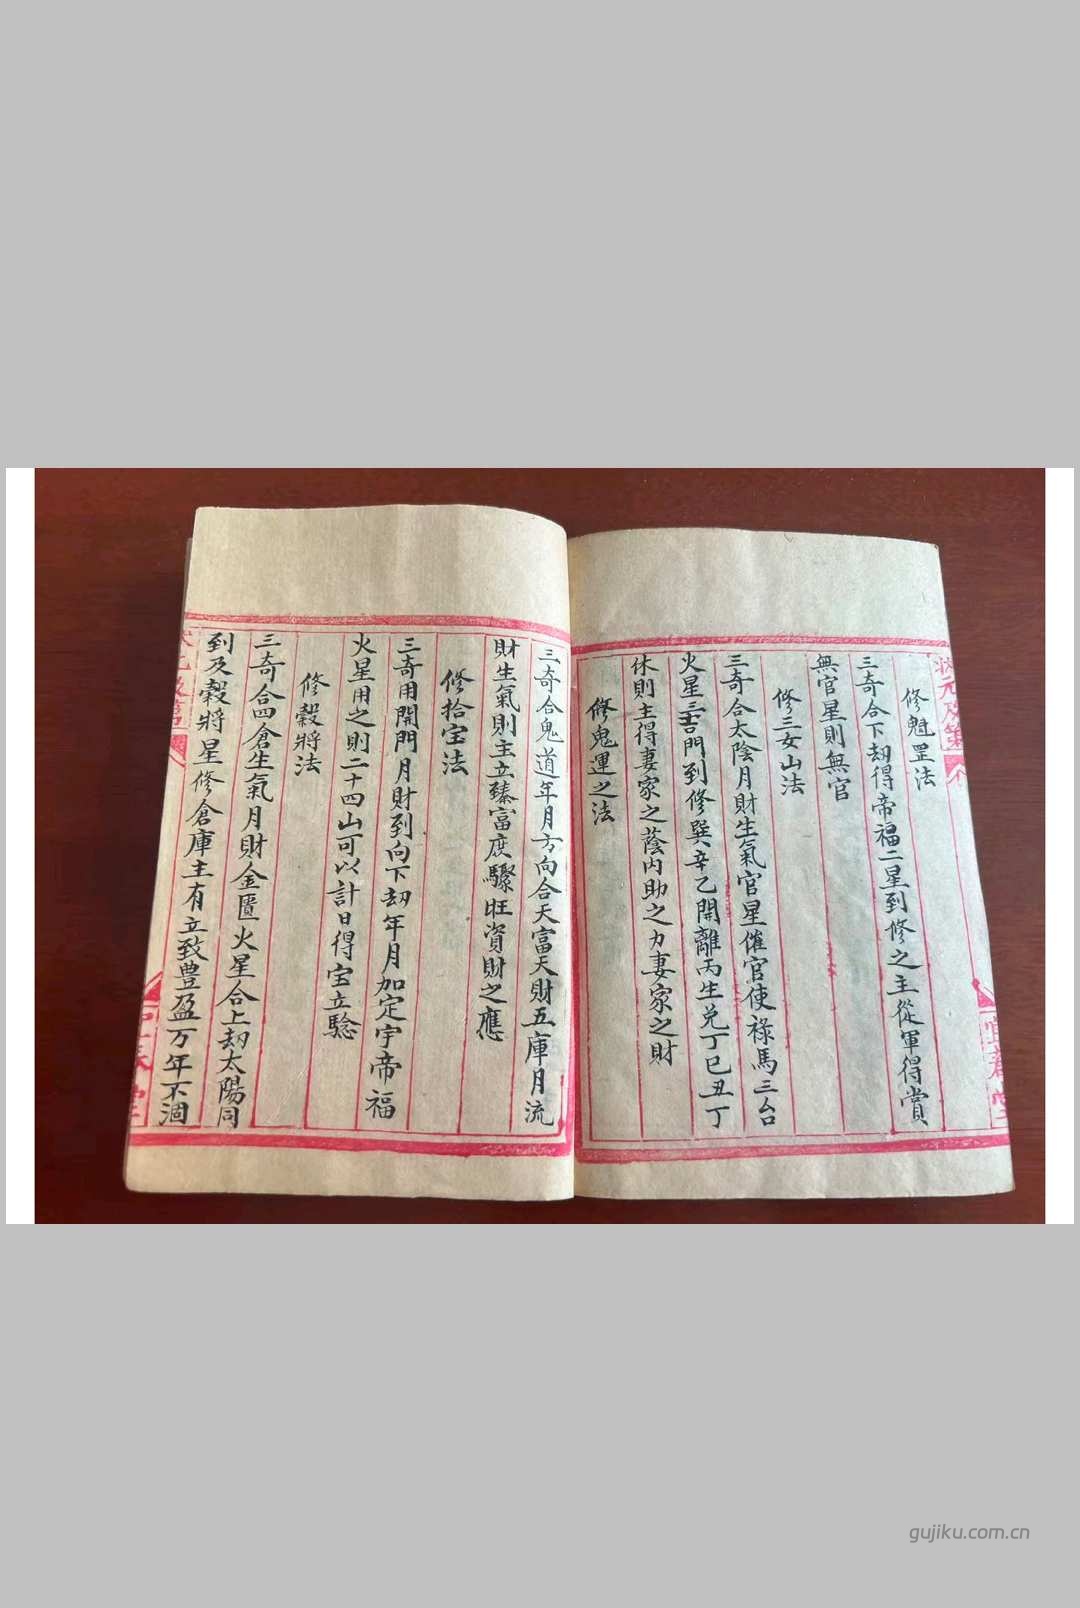 修魁罡法
三奇合下劫得帝福二星到修之主從軍得賞
無官星則無官
修三女山法
三奇合太陰月財生氣官星催官使祿馬三台
火星三吉門到修巽辛乙開離丙生兑丁巳丑丁
休則主得妻家之蔭內助之力妻家之財
修鬼運之法
三奇合鬼道年月方向合天富天財五庫月流
財生氣則主立臻富庶驟旺資財之應
修拾宝法
三奇用開門月財到向下劫年月加定宇帝福
火星用之則二十四山可以計日得宝立騐
修穀將法
三奇合四倉生氣月財金匱火星合上劫太陽同
到及穀將星修倉庫主有立致豊盈万年不涸
状元及第
gujiku.com.cn